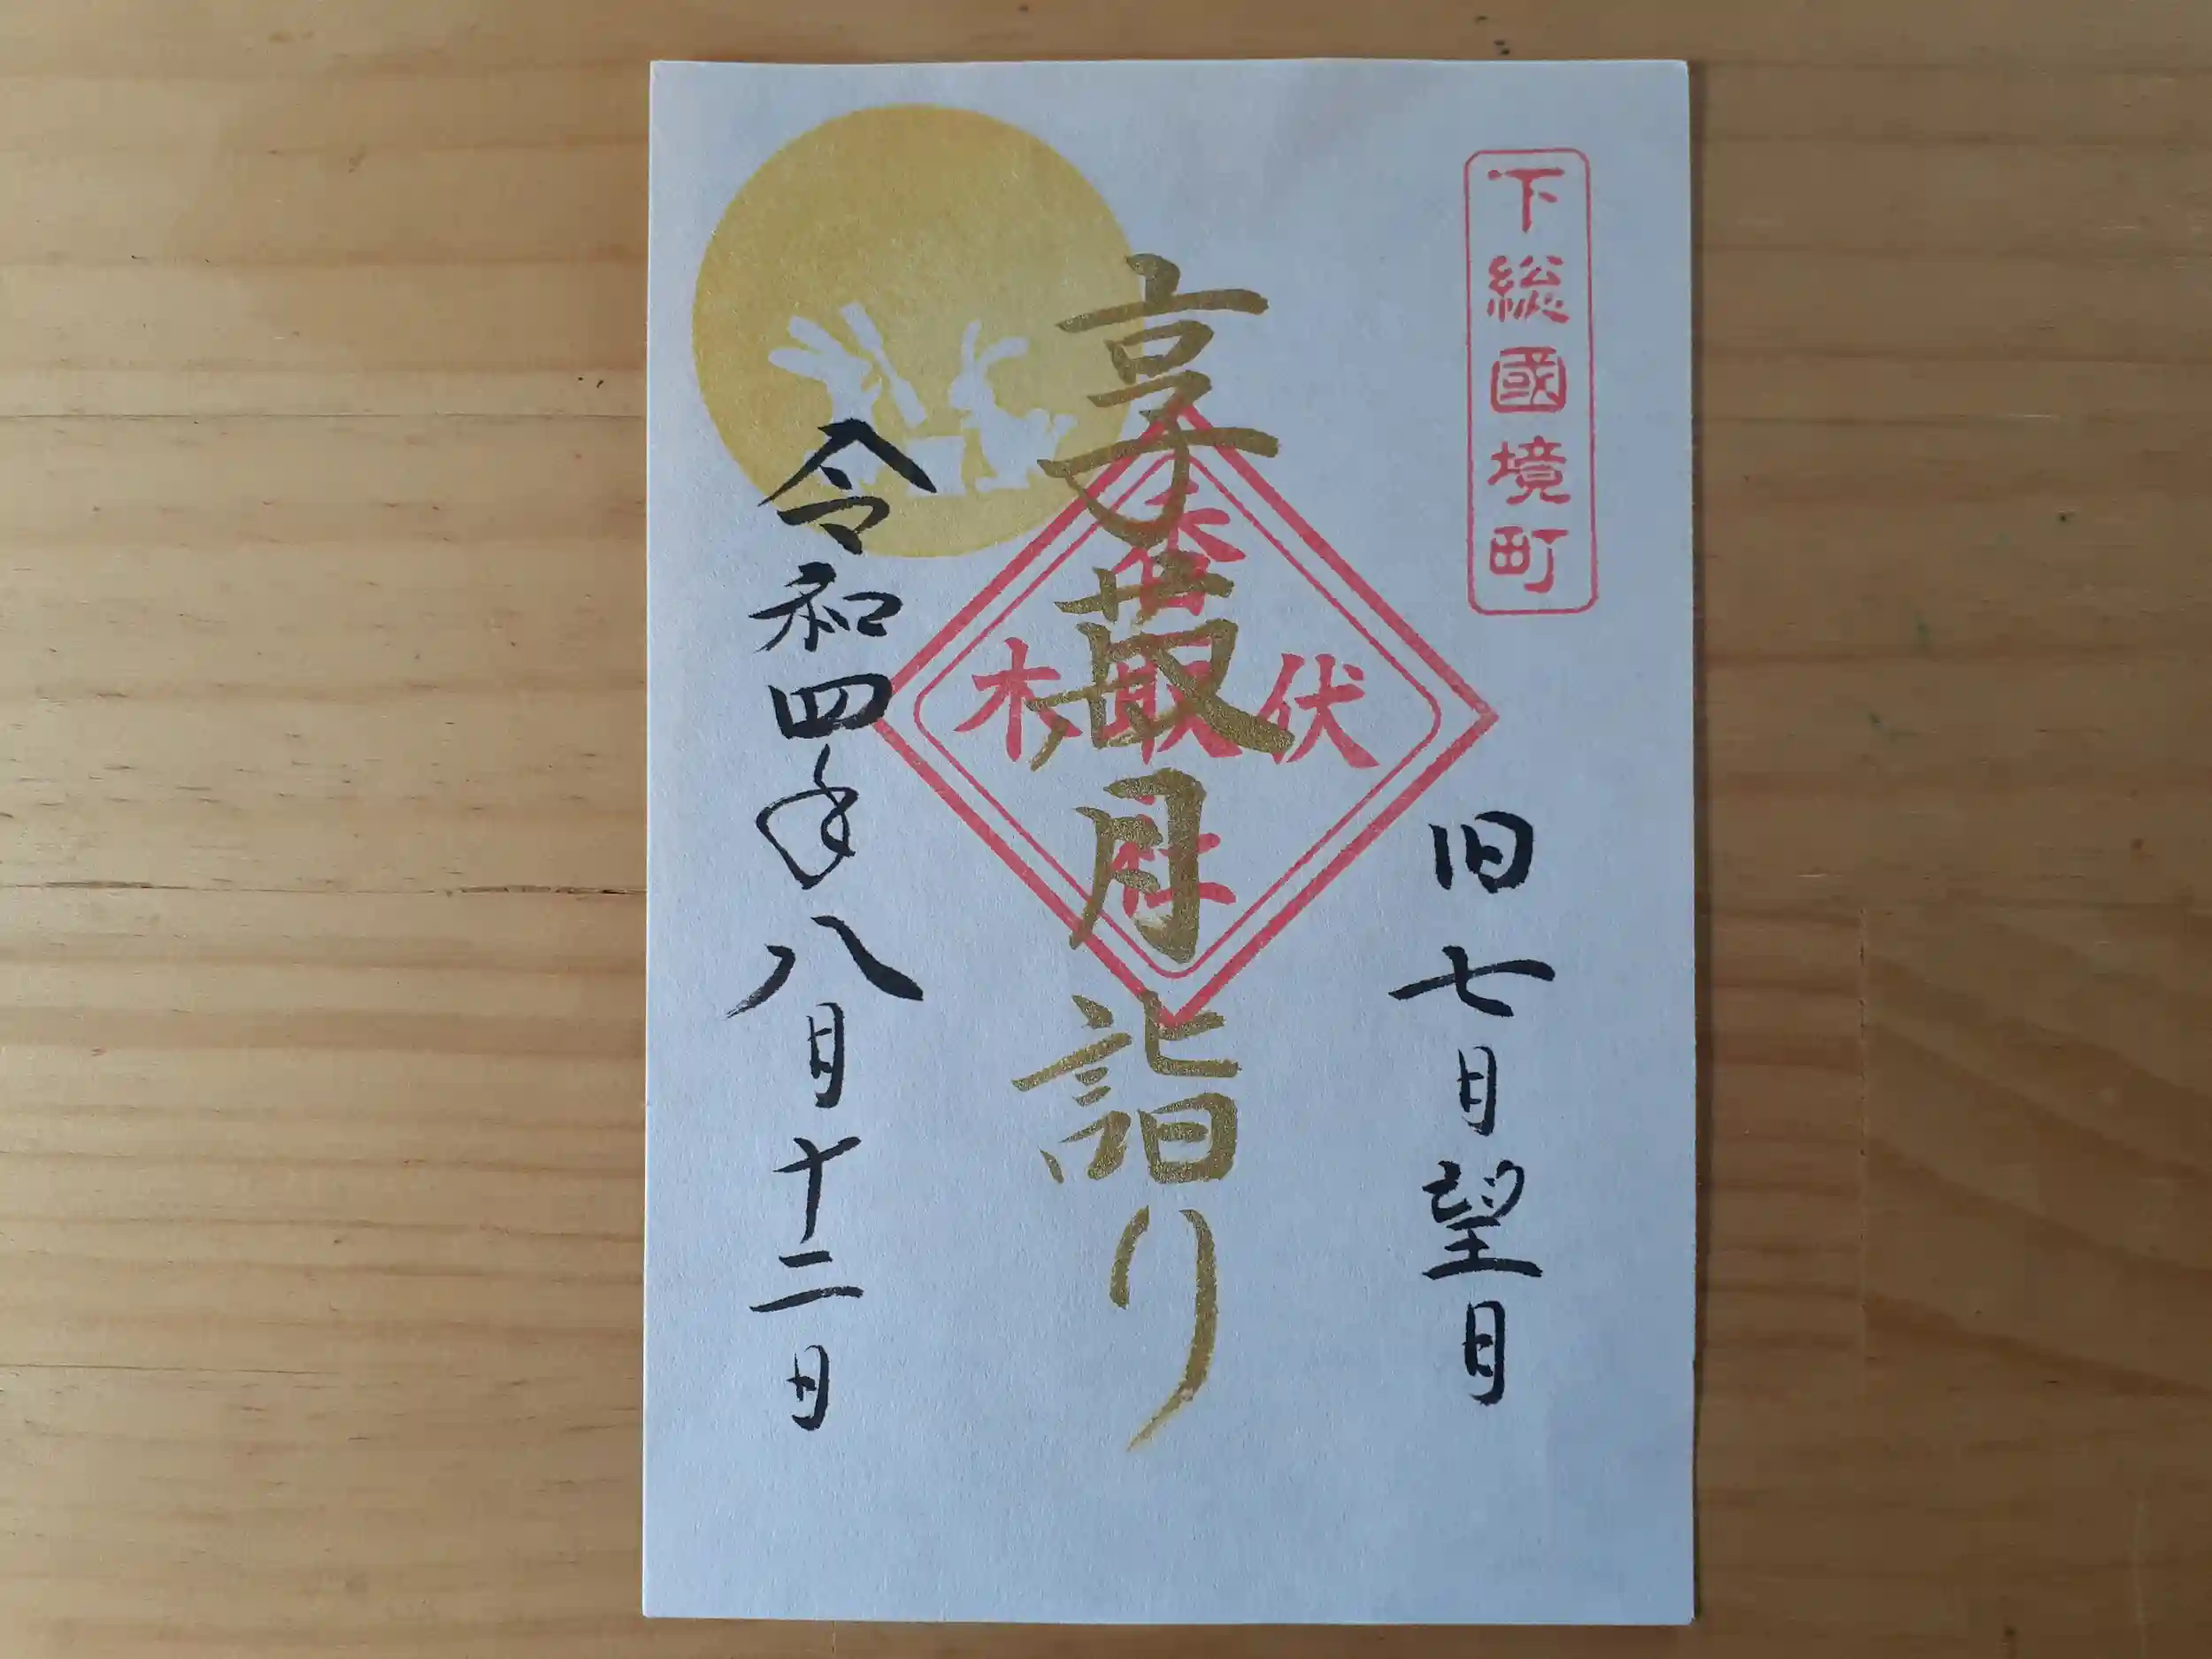 下総國境町
旧七月望日
享月詣り
香
伏取木
社
令和四年八月十二日